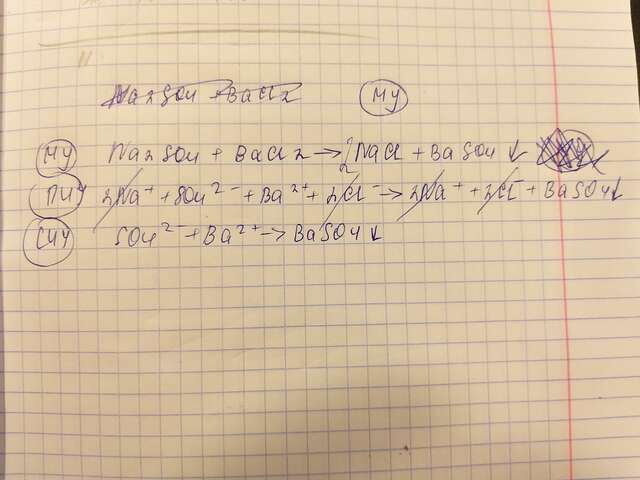 Na2SO4 + BaCl2 МУ
МУ Na2SO4 + BaCl2 → 2NaCl + BaSO4↓
ПИУ 2Na⁺ + SO4²⁻ + Ba²⁺ + 2Cl⁻ → 2Na⁺ + 2Cl⁻ + BaSO4↓
СИУ SO4²⁻ + Ba²⁺ → BaSO4↓